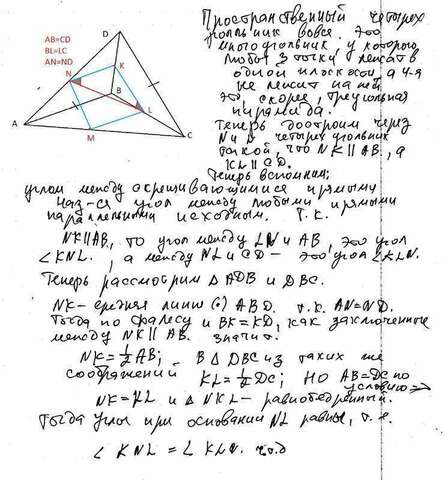 AB=CD
BL=LC
AN=ND
D
N
K
B
L
A
M
C
Пространственный четырех
угольник вовсе. Это
многоугольник, у которого
любые 3 точки лежат в
одной плоскости, а 4-я
не лежит на ней
Это, скорее, треугольная
пирамида.
Теперь достроим через
N и L четырехугольник
такой, что NK∥AB, а
KL∥CD.
Теперь вспомним;
углом между скрещивающимися прямыми
наз-ся угол между любыми прямыми
параллельными исходным. Т.к.
NK∥AB, то угол между LN и AB, это угол
∠KNL, а между NL и CD - это угол ∠KLN.
Теперь рассмотрим △ADB и DBC.
NK - средняя линия ABD. т.к. AN=ND.
Тогда по фалесу и BK=KD, как заключенные
между NK∥AB. Значит.
NK=½AB; В △DBC из таких же
соображений KL=½DC; Но AB=DC по
условию ⇒
NK=KL и △NKL - равнобедренный.
Тогда углы при основании NL равны, т.е.
∠KNL = ∠KLN. чтд